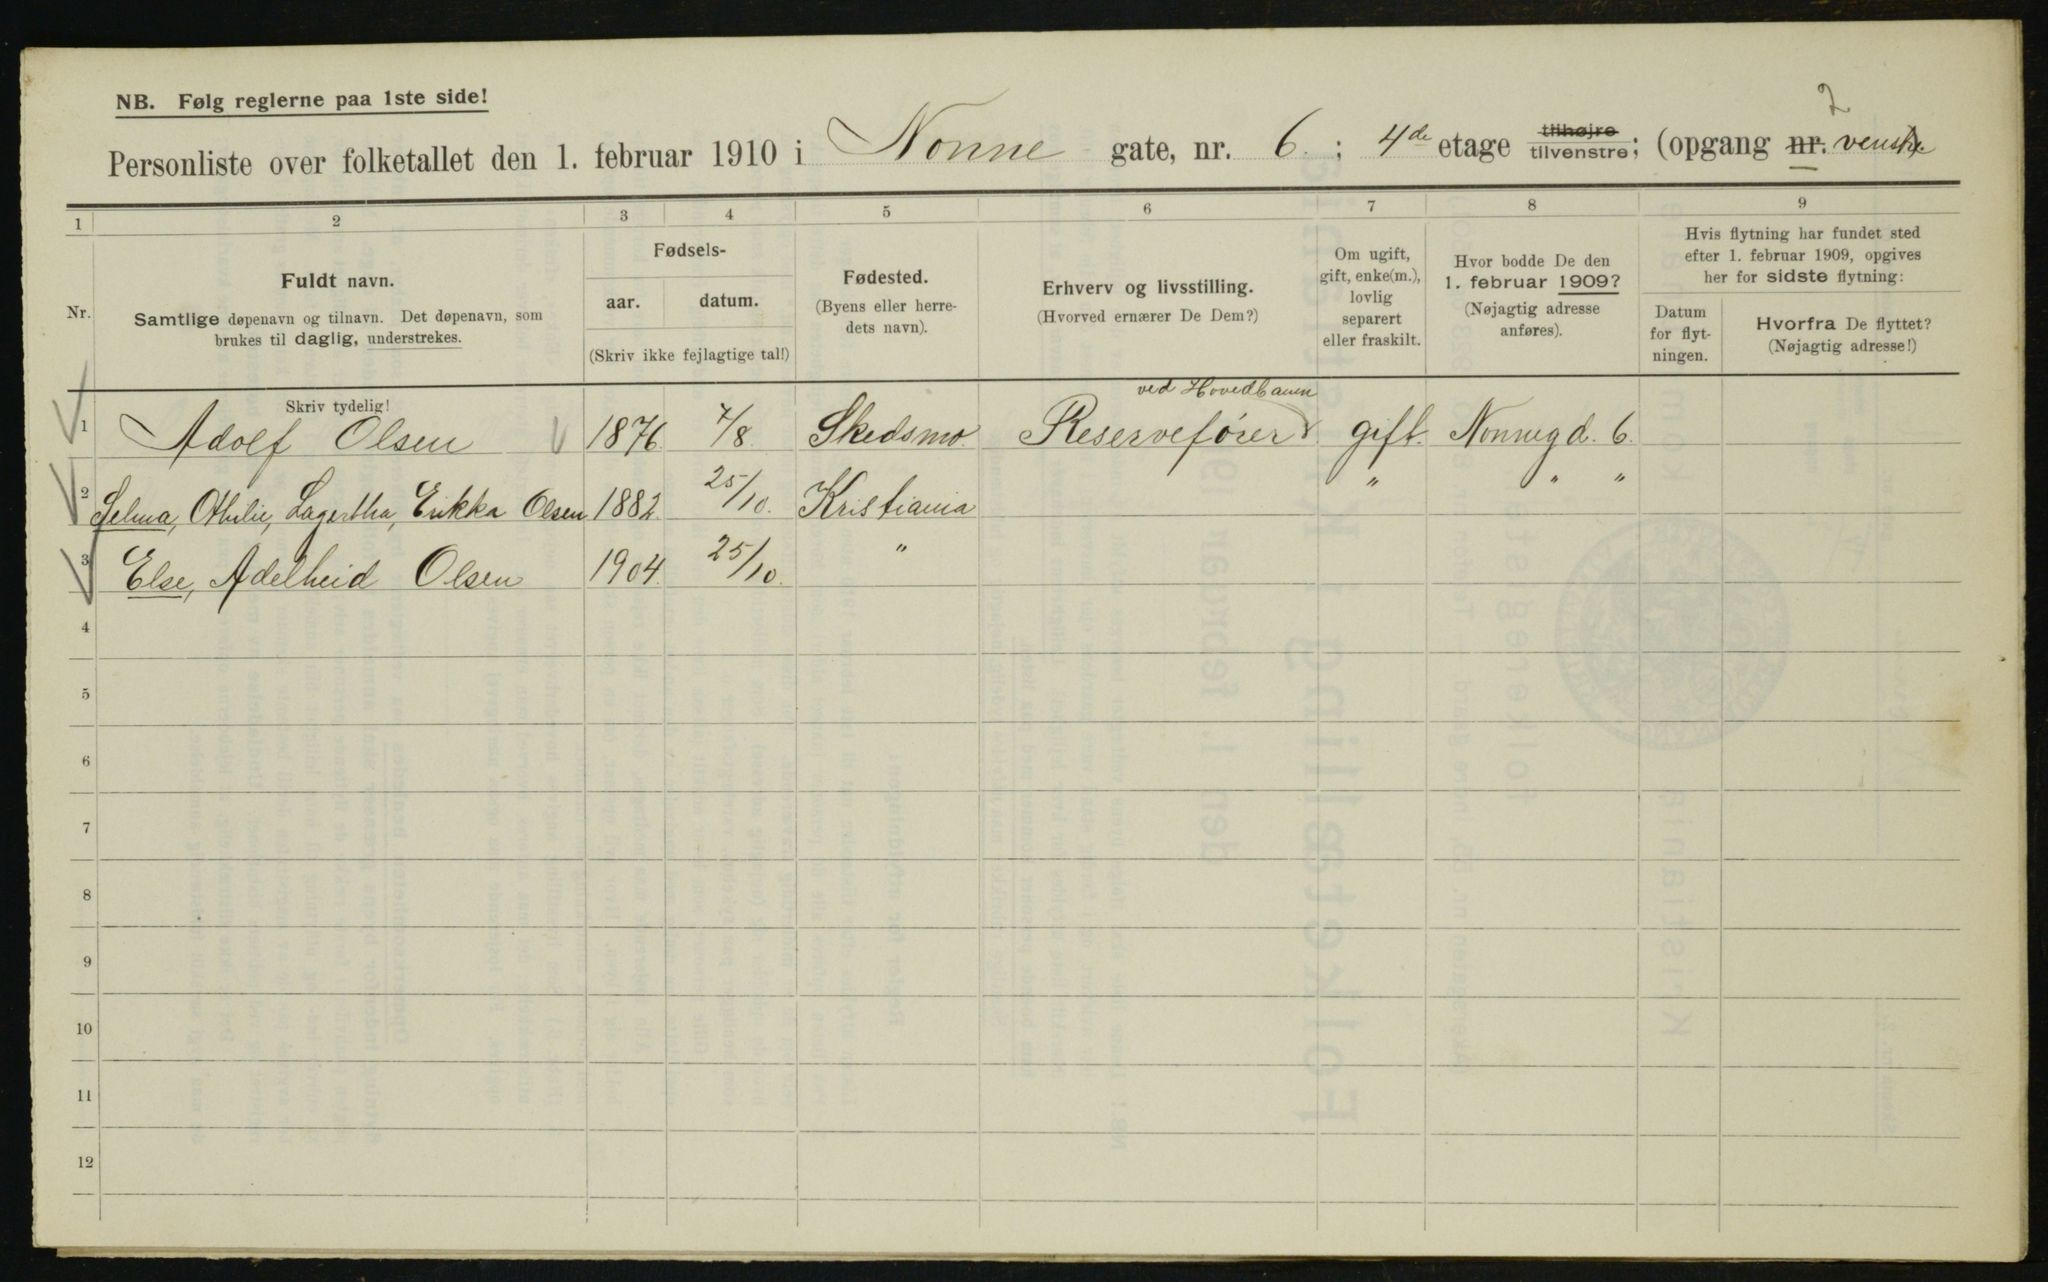 NB. Følg reglerne paa 1ste side!
2
Personliste over folketallet den 1. februar 1910 i Nonne gate, nr. 6. ; 4de etage tilhøjre tilvenstre; (opgang nr. venstre
1 2 3 4 5 6 7 8 9
Nr.
Fuldt navn.
Samtlige døpenavn og tilnavn. Det døpenavn, som
brukes til daglig, understrekes.
Fødsels-
aar. datum.
(Skriv ikke fejlagtige tal!)
Fødested.
(Byens eller herre-
dets navn).
Erhverv og livsstilling.
(Hvorved ernærer De Dem?)
Om ugift,
gift, enke(m.),
lovlig
separert
eller fraskilt.
Hvor bodde De den
1. februar 1909?
(Nøjagtig adresse
anføres).
Hvis flytning har fundet sted
efter 1. februar 1909, opgives
her for sidste flytning:
Datum
for flyt-
ningen.
Hvorfra De flyttet?
(Nøjagtig adresse!)
Skriv tydelig!
ved Hovedbanen
1 Adolf Olsen 1876. 7/8. Skedsmo. Reservefører gift. Nonnegd. 6.
2 Selma, Othilie, Lagertha, Erikka Olsen 1882. 25/10. Kristiania " " "
3 Else, Adelheid Olsen 1904. 25/10. "
4
5
6
7
8
9
10
11
12